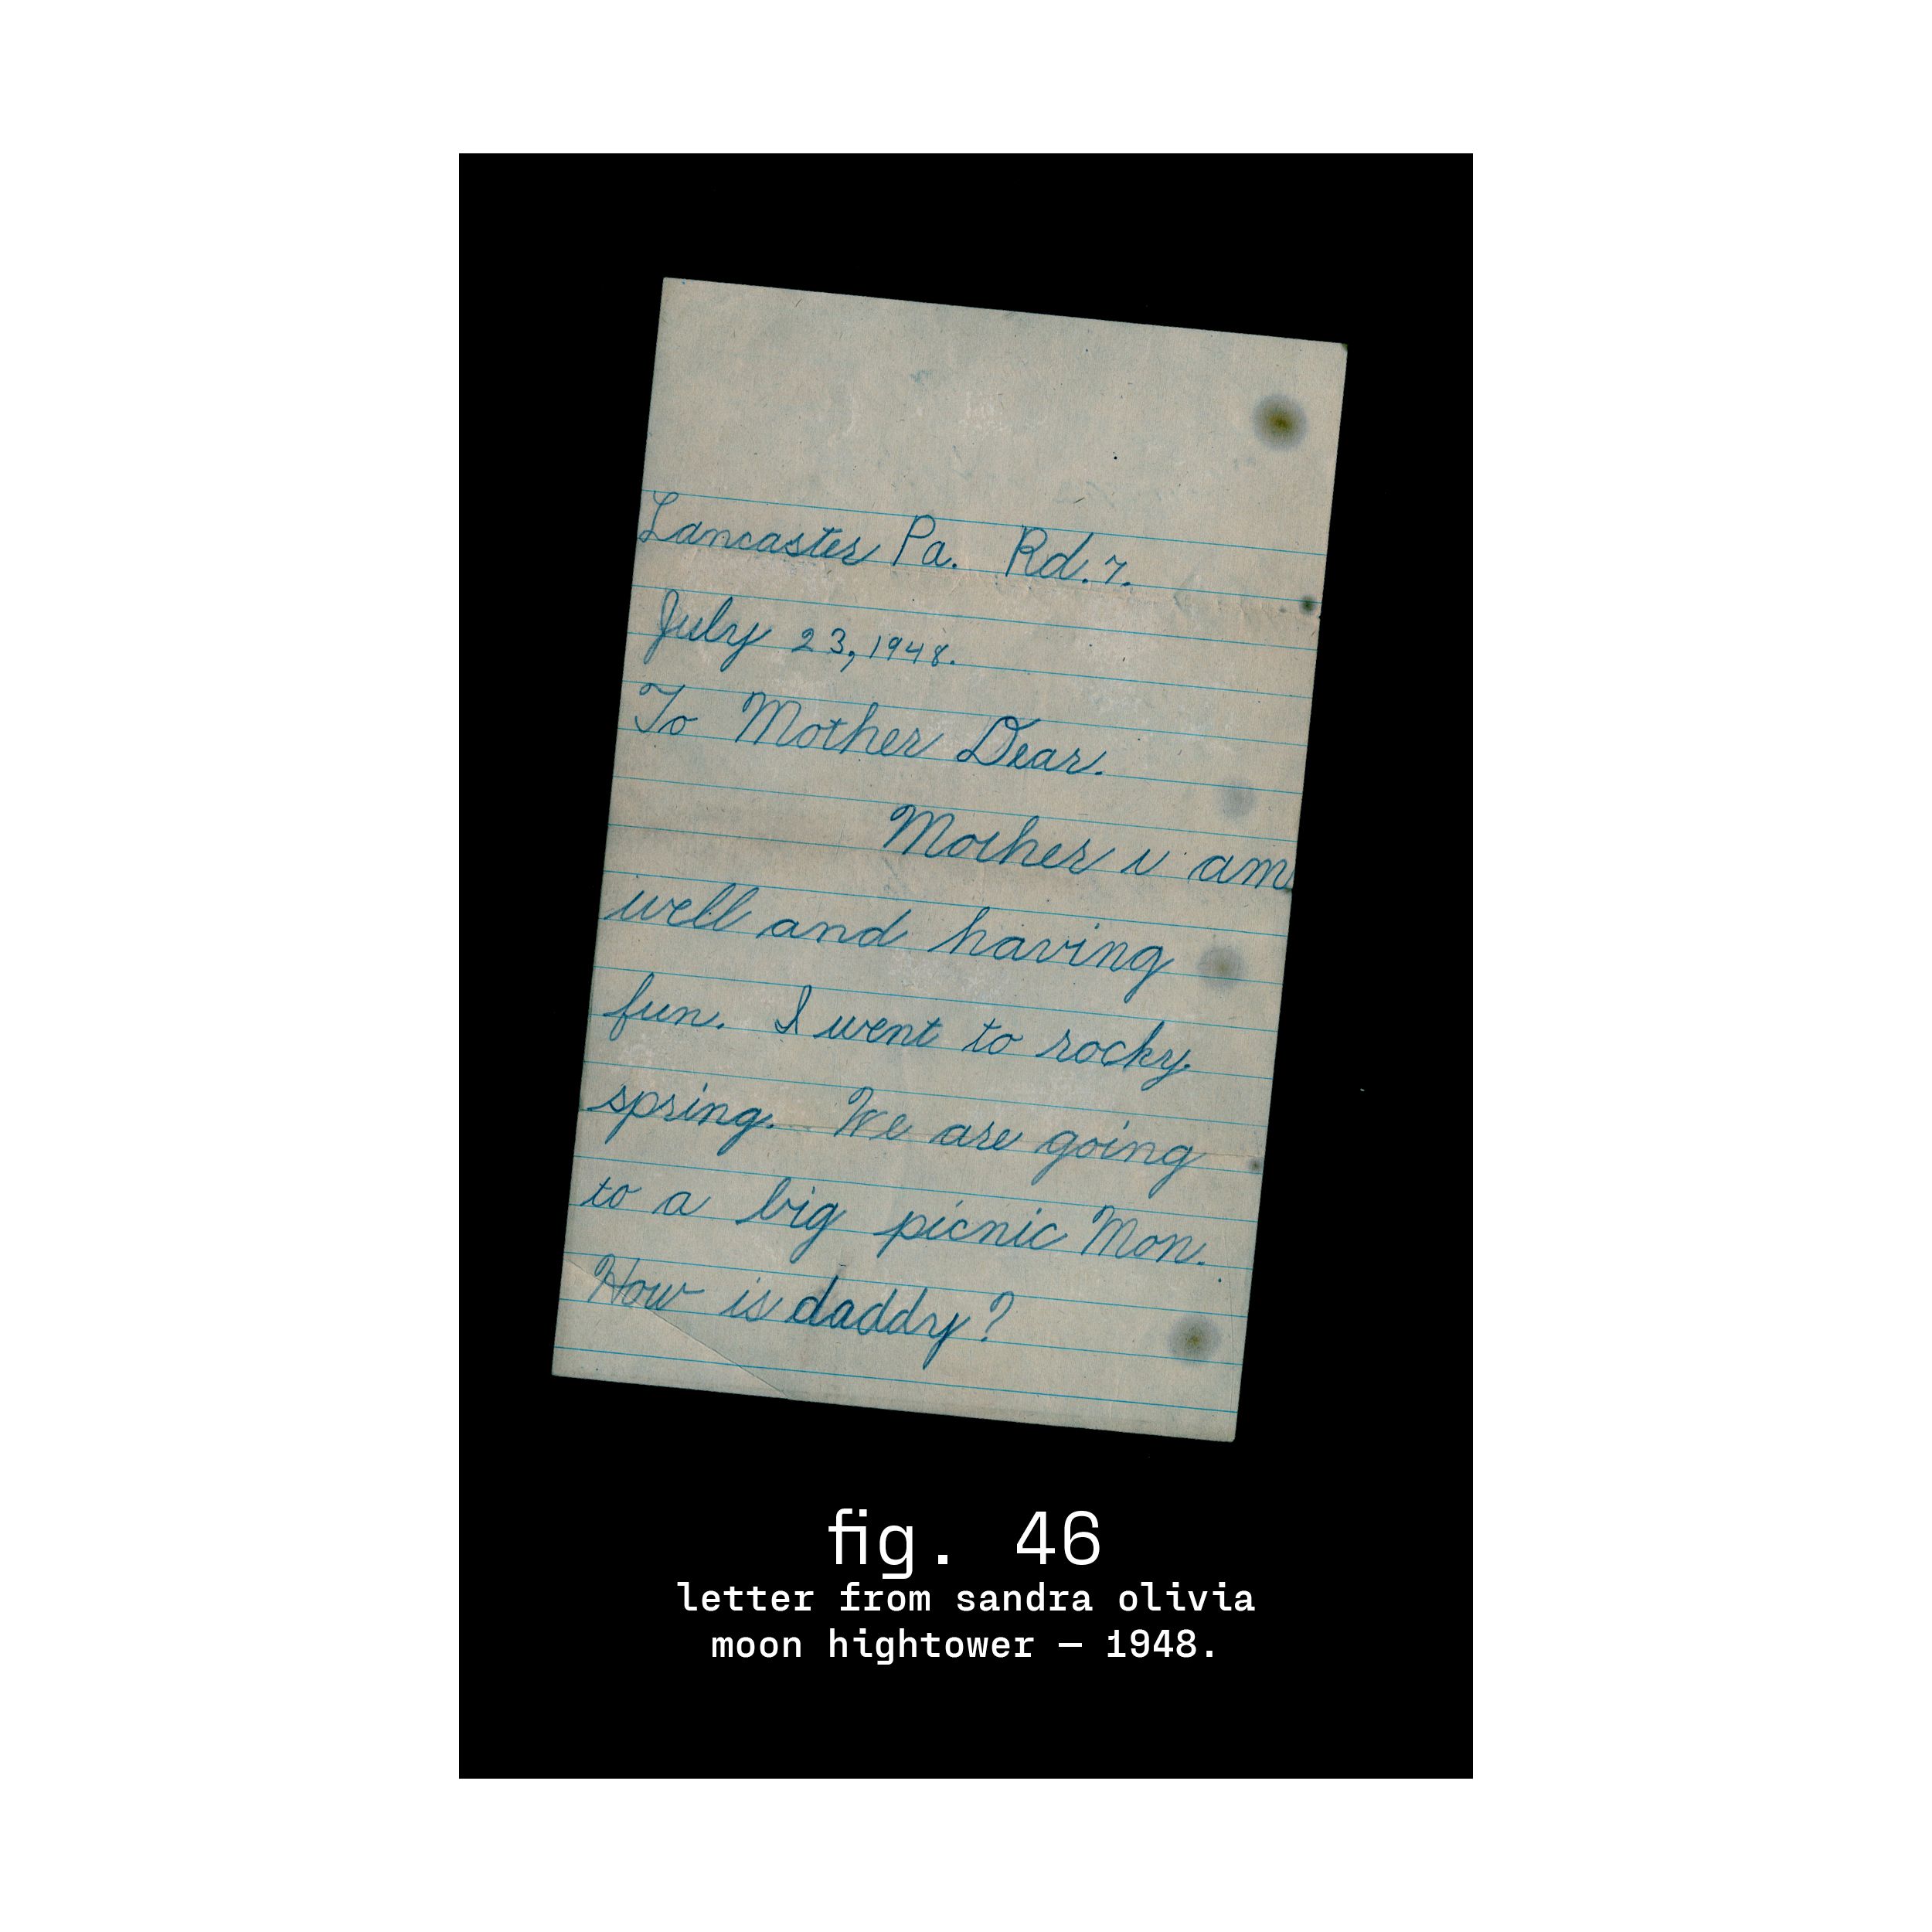 Lancaster Pa. Rd. 7.
July 23, 1948.
To Mother Dear.
Mother i am
well and having
fun. I went to rocky
spring. We are going
to a big picnic Mon.
How is daddy?
fig. 46
letter from sandra olivia
moon hightower — 1948.